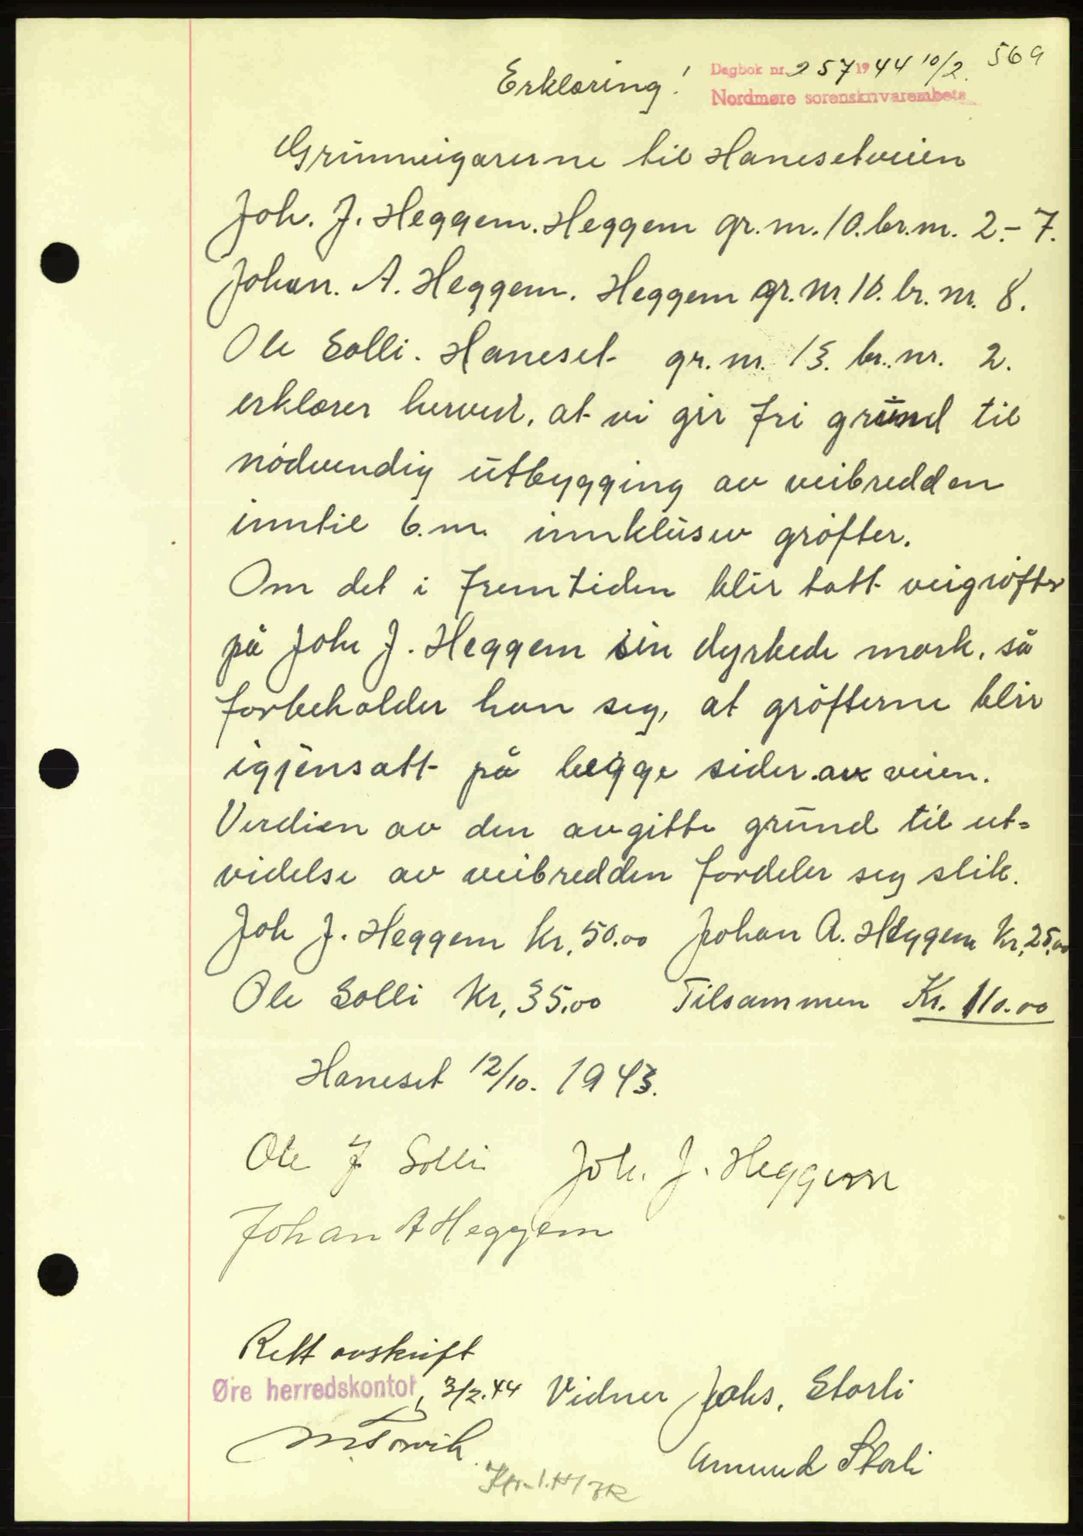 569
Dagbok nr. 257 1944 10/2.
Nordmøre sorenskrivarembete
Erklæring!
Grunneigarerne til Hanesetveien
Joh. J. Heggem. Heggem gr.nr. 10. br.nr. 2.- 7.
Johan. A. Heggem. Heggem gr. nr. 10. br. nr. 8.
Ole Solli. Haneset gr. nr. 13. br. nr. 2.
erklærer herved, at vi gir fri grund til
nödvendig utbygging av veibredden
inntil 6. m. innklusiv gröfter.
Om det i fremtiden blir tatt veigröfter
på Joh J. Heggem sin dyrkede mark, så
forbeholder han seg, at gröfterne blir
igjensatt på begge sider av veien.
Verdien av den avgitte grund til ut=
videlse av veibredden fordeler seg slik.
Joh J. Heggem kr. 50.00 Johan A. Heggem kr. 25,00
Ole Solli Kr. 35,00 Tilsammen Kr. 110.00
Haneset 12/10. 1943.
Ole J Solli Joh. J. Heggem
Johan A Heggem
Rett avskrift
Øre herredskontor, 3/2.44 Vidner Johs. Storli
Amund Storli